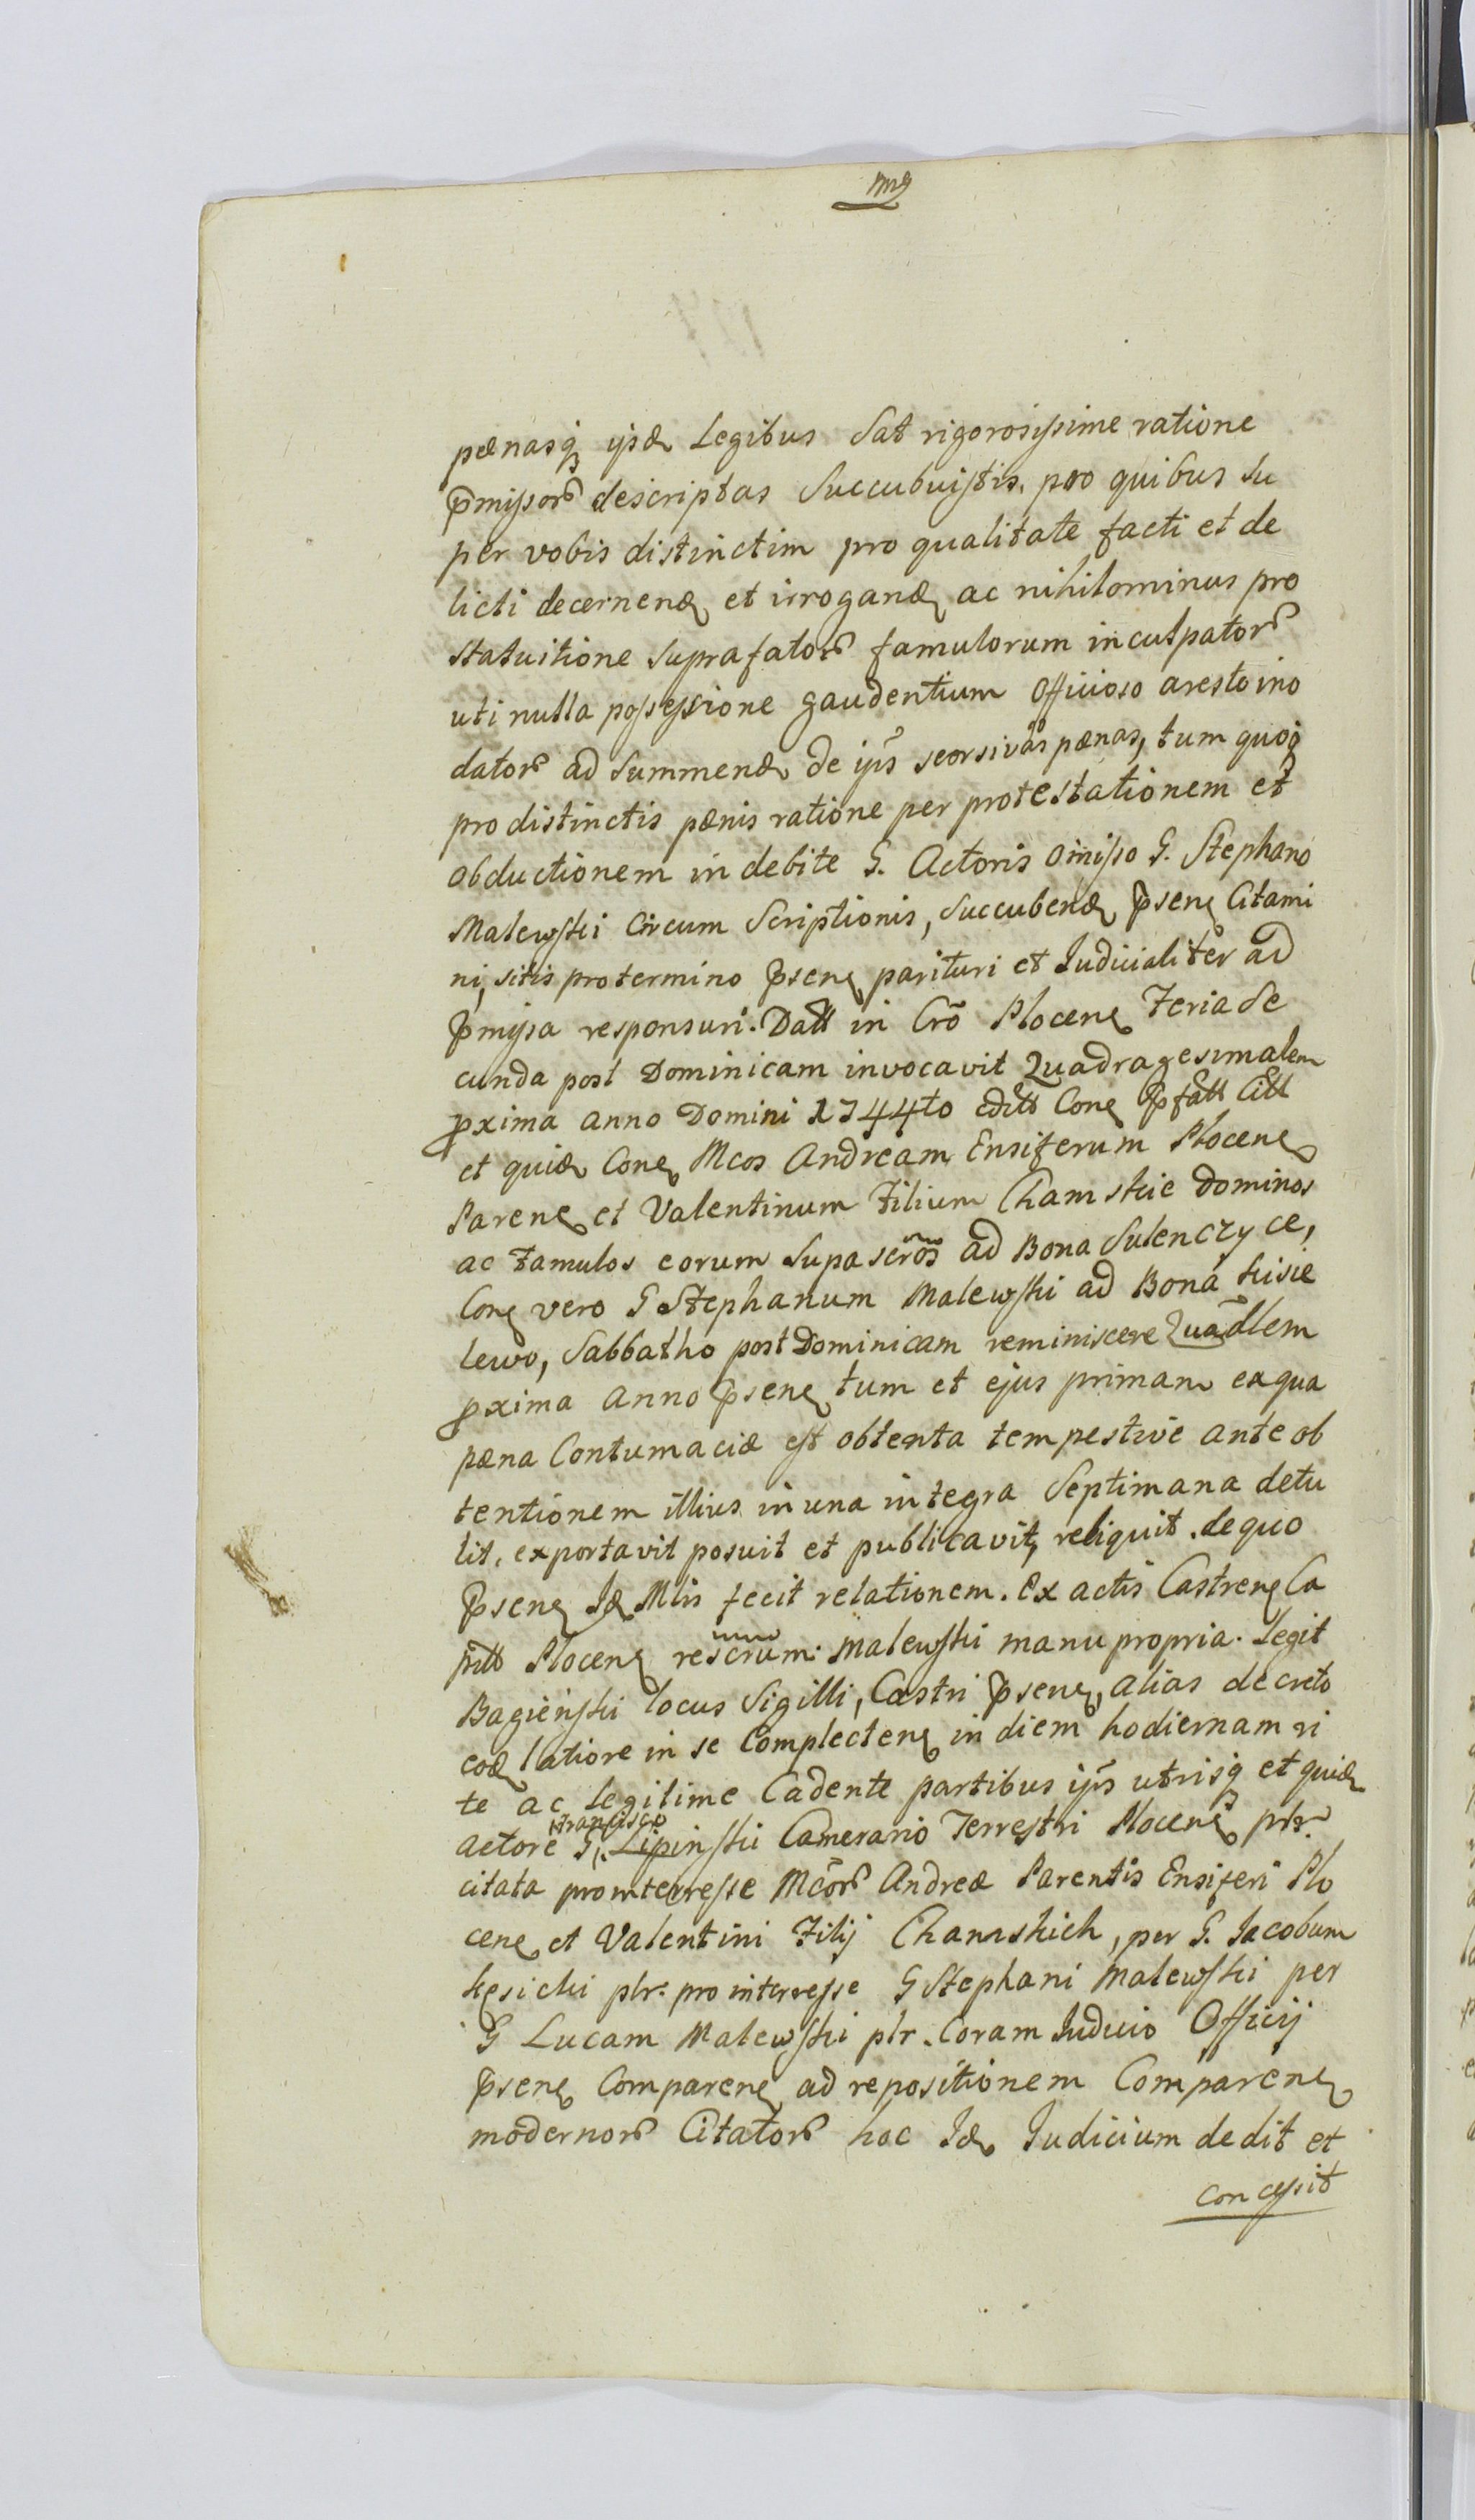 pœnasq ijsd Legibus Sat rigorosissime ratione
pmissor descriptas Succubuistis, pro quibus su
per vobis distinctim pro qualitate facti et de
licti decernend et irrogand ac nihilominus pro
statuitione suprafator famulorum inculpator
uti nulla possessione gaudentium Officioso aresto ino
dator ad summend de ijs seorsivas pœnas, tum quoq
pro distinctis pœnis ratione per protestationem et
obductionem indebite G. Actoris omisso G. Stephano
Malewski Circum Scriptionis, succubend psen Citami
ni, sitis pro termino psen parituri et Judicialiter ad
pmissa responsuri. Datt in Cro Plocen Feria Se
cunda post Dominicam invocavit Quadragesimalem
pxima Anno Domini 1744to Editt Con pfatt Citt
et quid Con Mcos Andream Ensiferum Plocen
Paren et Valentinum Filium Chamskie Dominos
ac Famulos eorum supascros ad Bona Sulenczyce,
Con vero G Stephanum Malewski ad Bona Kisie
lewo, Sabbatho post Dominicam reminiscere Quadlem
pxima Anno psen tum et ejus primam ex qua
pœna Contumaciæ est obtenta tempestive ante ob
tentionem illius in una integra Septimana detu
lit, exportavit posuit et publicavit, reliquit. de quo
psen Id Mlis fecit relationem. Ex actis Castren Ca
pitt Plocen rescrum. Malewski manu propria. Legit
Bagieński locus Sigilli, Castri psen, alias decreto
eod latiore in se Complecten in diem hodiernam ri
te ac Legitime Cadente partibus ijs utrisq et quid
Francisco
actore G. Lipinski Camerario Terrestri Plocen plr
citata pro interresse Mcor Andreæ Parentis Ensiferi Plo
cen et Valentini Filij Chamskich, per G. Jacobum
Kęsicki plr. pro interresse G Stephani Malewski per
G Lucam Malewski plr. Coram Judicio Officij
psen Comparen ad repositionem Comparen
modernor Citator hoc Id Judicium dedit et
concessit